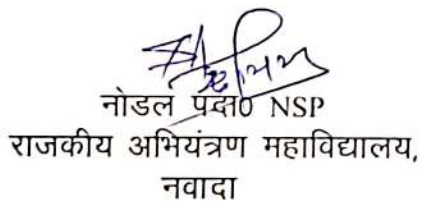 नोडल पदा0 NSP
राजकीय अभियंत्रण महाविद्यालय,
नवादा